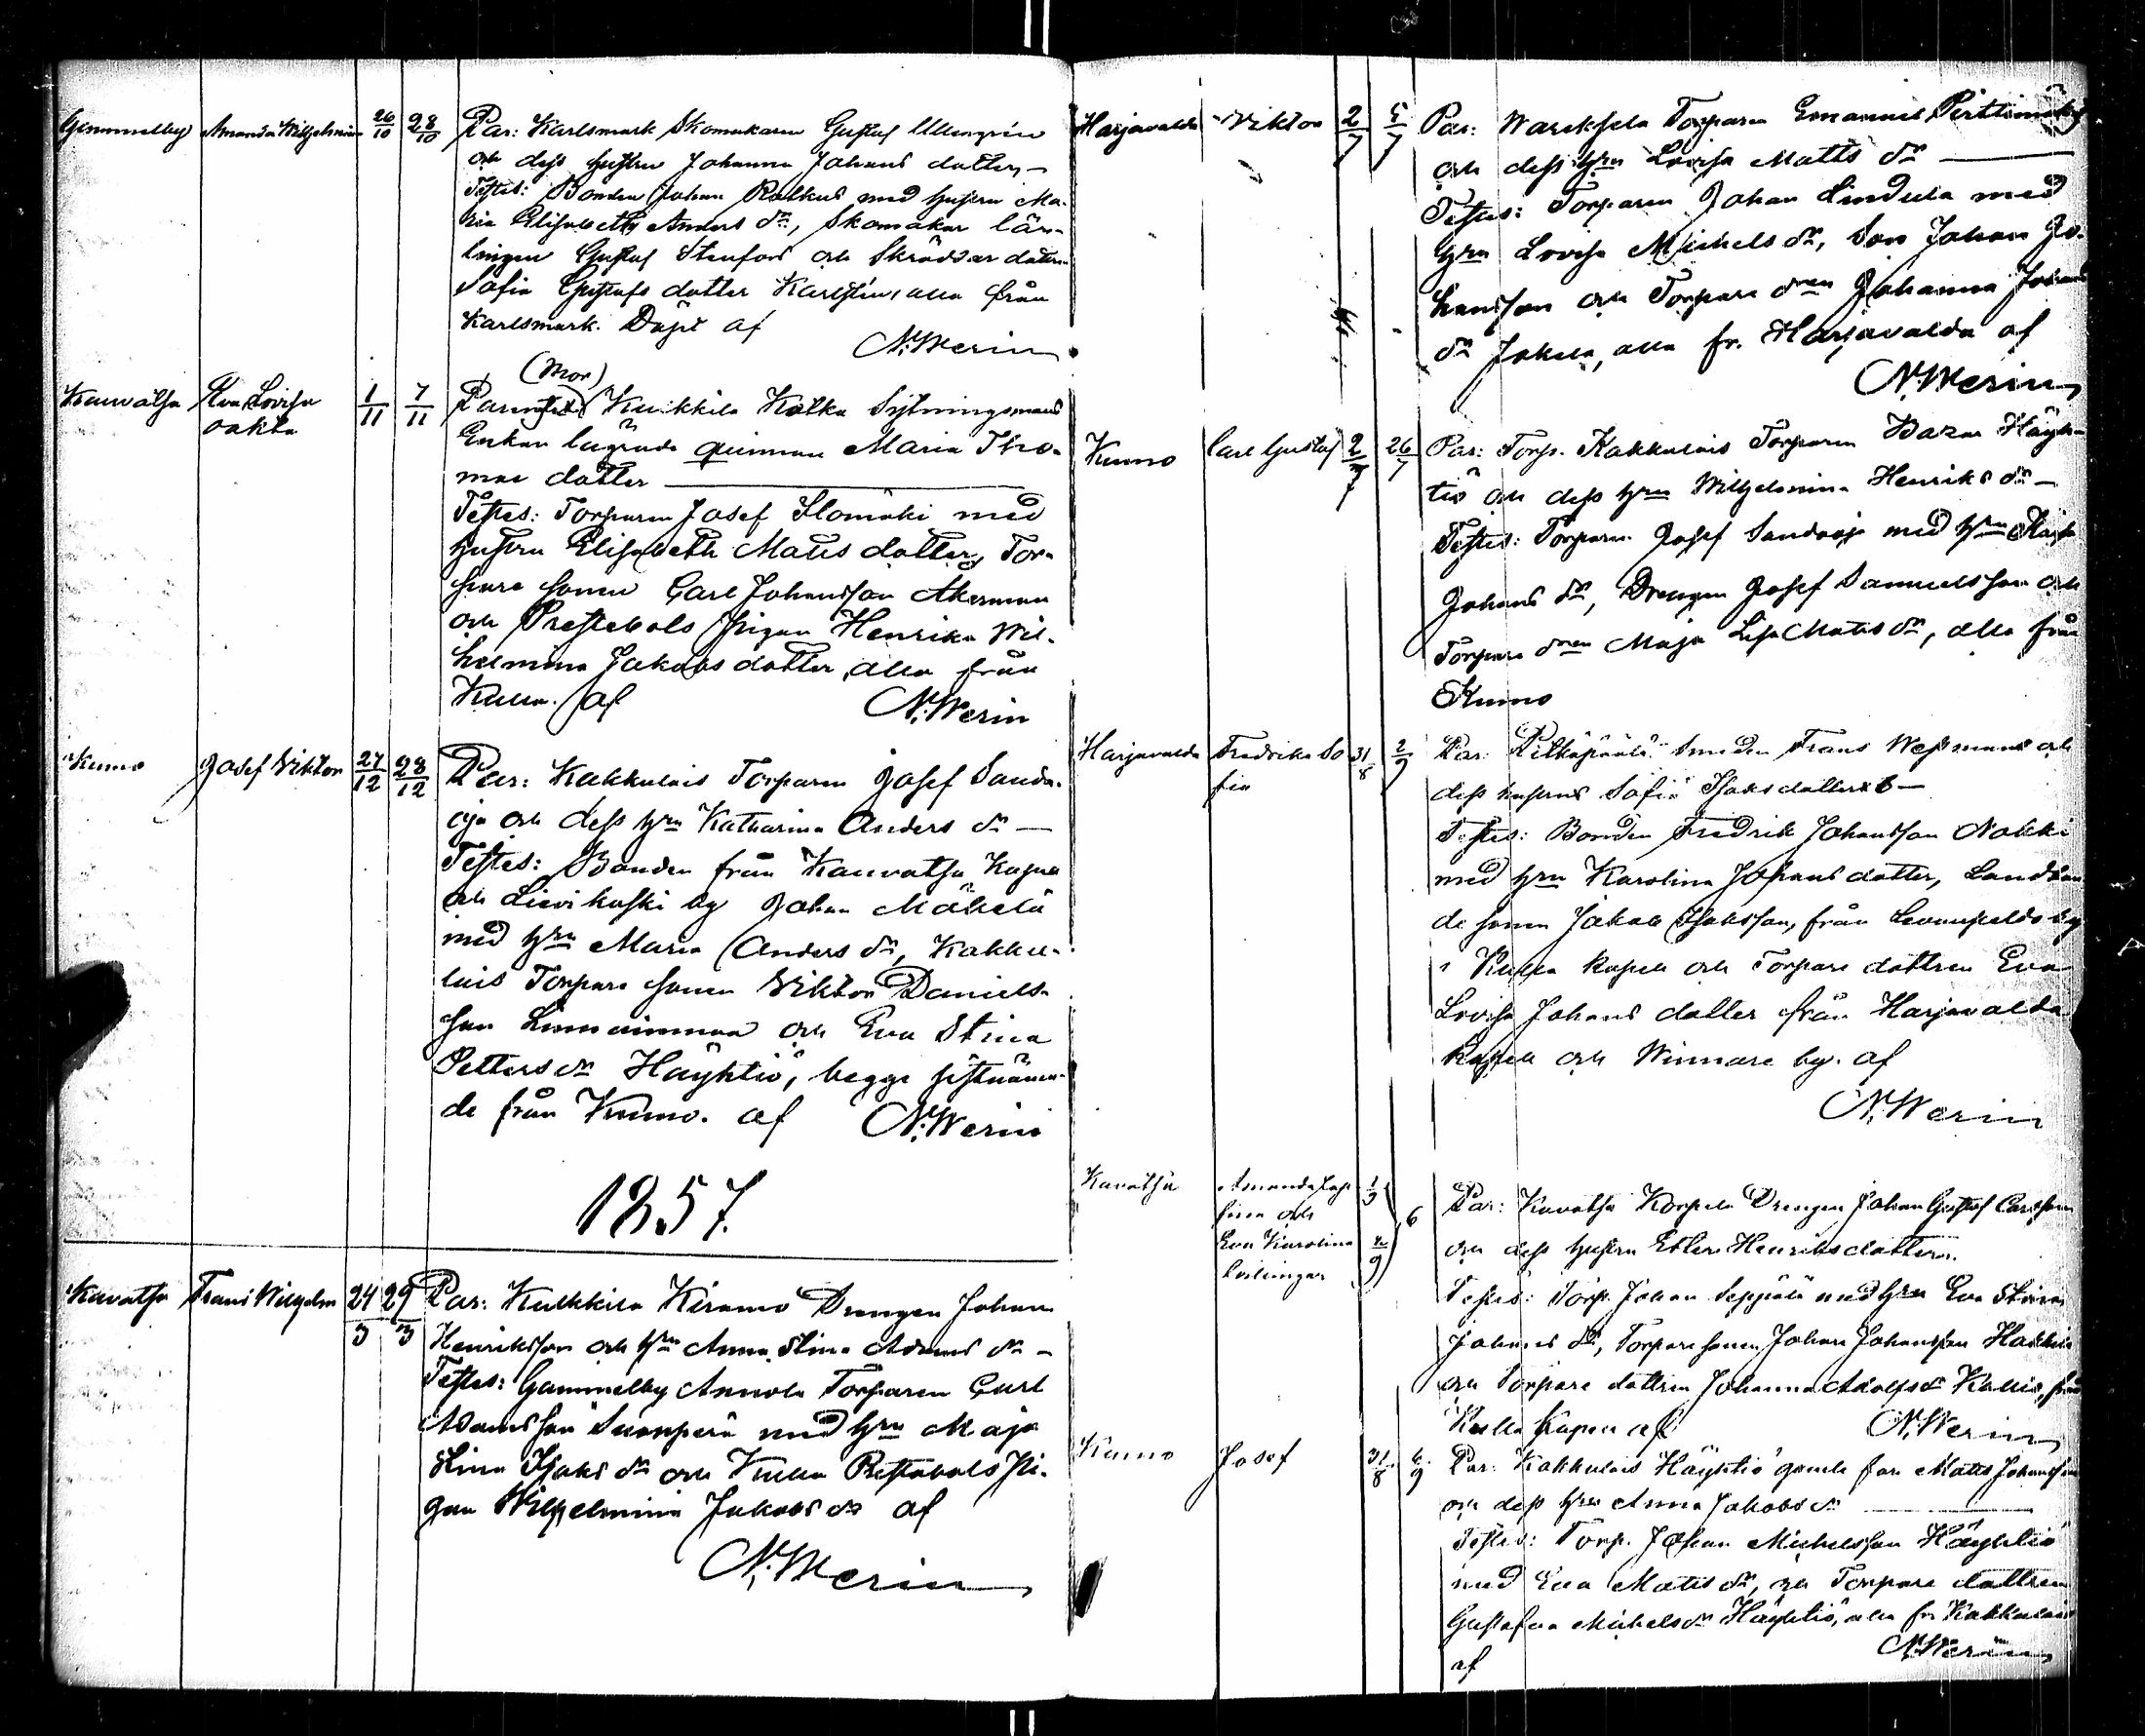 Gammelby Amanda Wilhelmina 26/10 28/10 Par: Karlsmark Skomakaren Gustaf Ullengrén
och dess hustru Johanna Johans dotter, —
Testes: Bonden Johan Ratkus med hustru Ma-
ria Elisabeth Anders dr, Skomakar lär-
lingen Gustaf Stenfors och Skräddar dottren
Sofia Gustafs dotter Karlsten, alla från
Karlsmark. Döpt af
N: Werin
Kauvatsa Eva Lovisa oäkta 1/11 7/11 (Mor) Kuikkila Katka Sytningsmans
Enkan lägrade quinnan Maria Tho-
mas dotter
Testes: Torparen Josef Ilomäki med
hustru Elisabeth Matts dotter, Tor-
pare sonen Carl Johansson Akerman
och Prestebols pigan Henrika Wil-
helmina Jakobs dotter, alla från
Kulla. af N: Werin
Kumo Josef Viktor 27/12 28/12 Par: Kakkulais Torparen Josef Sand-
oja och dess hru Katharina Anders dr —
Testes: Bonden från Kauvatsa Kapell
och Lievikoski by Johan Mäkelä
med hru Maria Anders dr, Kakku-
lais Torpare sonen Viktor Daniels-
son Linnainmaa och Eva Stina
Petters dr Häyhtiö, begge sistnämn-
de från Kumo. af N: Werin
1857.
Kavatsa Frans Wilhelm 24/3 29/3 Par: Kulkkila Kiramo Drengen Johan
Henriksson och hru Anna Stina Adams dr —
Testes: Gammelby Annola Torparen Carl
Adamsson Suonperä med hru Maja
Stina Isaks dr och Kulla Prestabols Pi-
gan Wilhelmina Jakobs dr af
N: Werin
Harjavalda Viktor 2/7 5/7 Par: Torparen Emanuel Pirttimäki
och dess hru Lovisa Matts dr —
Testes: Torparen Johan Lindula med
hru Lovisa Michels dr, Son Johan Jo-
hansson och Torpare dren Johanna Johans
dr Jokela, alla fr. Harjavalda af
N: Werin
Kumo Carl Gustaf 2/7 26/7 Par: Torp. Kakkulais Torparen Häyh-
tiö och dess hru Wilhelmina Henriks dr —
Testes: Torparen Josef Sandoja med hru Kaisa
Johans dr, Drengen Josef Samuelsson och
Torpare dren Maja Lisa Matts dr, alla från
Kumo
Harjavalda Fredrika So 31/8 2/9 Par: Pitkäpäälä Smeden Frans Wessman och
fia dess hustru Sofia Isaks dotter —
Testes: Bonden Fredrik Johansson Nokki
med hru Karolina Johans dotter, Landbon-
de sonen Jakob Isaksson, från by
i Kulla kapell och Torpare dottren Eva
Lovisa Johans dotter från Harjavalda
Kapell och Winnare by. af
N: Werin
Kavatsa Amanda Jose 1/9 6
fina och
Eva Karolina /9
tvillingar
Par: Kavatsa Korpela Drengen Johan Gustaf Carlsson
och dess hustru Ester Henriks dotter.
Testes: Torp. Johan Seppälä med hru Eva Stina
Johans dr, Torpare sonen Johan Johansson
och Torpare dottren Johanna Adolfs dr Kallio, från
Kulla Kapell af N: Werin
Kumo Josef 31/8 6/9 Par: Kakkulais Häyhtiö gamle far Matts Johansson
och dess hru Anna Jakobs dr
Testes: Torp. Johan Michelsson Häyhtiö
med Eva Matts dr, och Torpare dottren
Gustafva Michels dr Häyhtiö, alla fr Kakkulais
af N: Werin